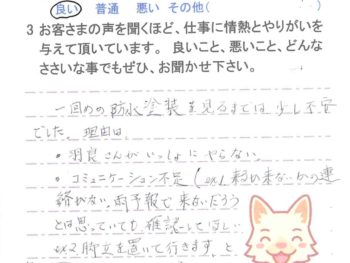 良い 普通 悪い その他(
3 お客さまの声を聞くほど、仕事に情熱とやりがいを
与えて頂いています。 良いこと、悪いこと、どんな
ささいな事でもぜひ、お聞かせ下さい。
一回めの防水塗装を見るまでは少し不安
でした。理由は、
・羽良さんがいっしょにやらない
・コミュニケーション不足(ex1 来る来ないかの連
絡がない。雨予報で来ないだろう
とは思っていても確認してほしい
ex2 脚立を置いて行きます、と